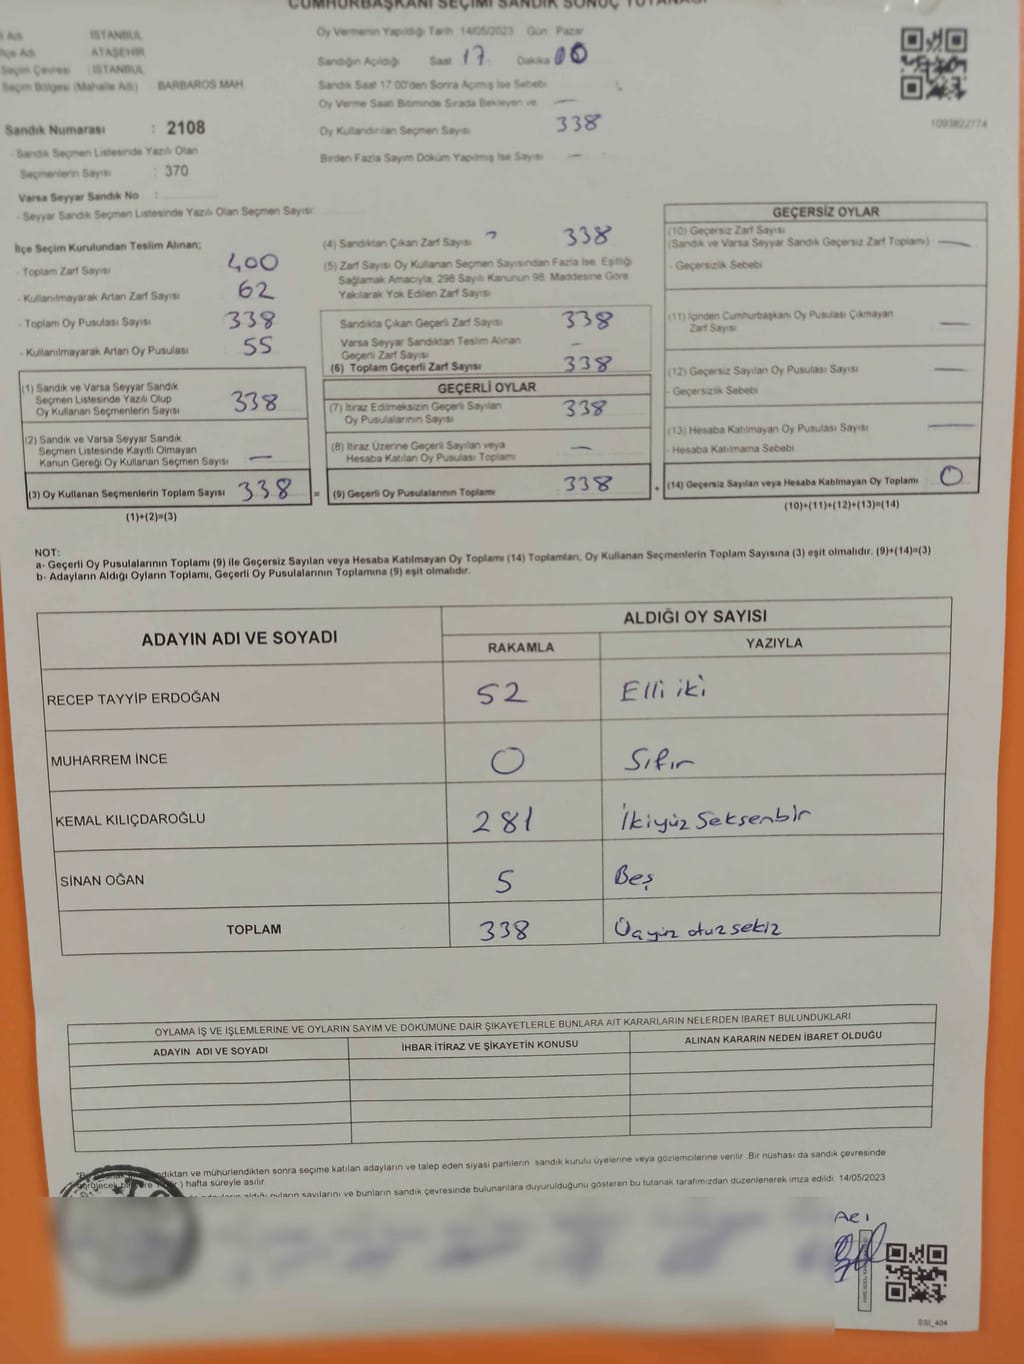 CUMHURBAŞKANI SEÇİMİ SANDIK SONUÇ TUTANAĞI
İli Adı İSTANBUL
İlçe Adı ATAŞEHİR
Seçim Çevresi : İSTANBUL
Seçim Bölgesi (Mahalle Adı) BARBAROS MAH.
Sandık Numarası : 2108
- Sandık Seçmen Listesinde Yazılı Olan
Seçmenlerin Sayısı : 370
Varsa Seyyar Sandık No :
- Seyyar Sandık Seçmen Listesinde Yazılı Olan Seçmen Sayısı:
Oy Vermenin Yapıldığı Tarih 14/05/2023 Gün Pazar
Sandığın Açıldığı Saat 17 Dakika 00
Sandık Saat 17.00'den Sonra Açılmış İse Sebebi
Oy Verme Saati Bitiminde Sırada Bekleyen ve —
Oy Kullandırılan Seçmen Sayısı 338
Birden Fazla Sayım Döküm Yapılmış İse Sayısı —
1093822774
İlçe Seçim Kurulundan Teslim Alınan;
- Toplam Zarf Sayısı 400
- Kullanılmayarak Artan Zarf Sayısı 62
- Toplam Oy Pusulası Sayısı 338
- Kullanılmayarak Artan Oy Pusulası 55
(1) Sandık ve Varsa Seyyar Sandık
Seçmen Listesinde Yazılı Olup
Oy Kullanan Seçmenlerin Sayısı 338
(2) Sandık ve Varsa Seyyar Sandık
Seçmen Listesinde Kayıtlı Olmayan
Kanun Gereği Oy Kullanan Seçmen Sayısı —
(3) Oy Kullanan Seçmenlerin Toplam Sayısı 338 =
(1)+(2)=(3)
(4) Sandıktan Çıkan Zarf Sayısı 338
(5) Zarf Sayısı Oy Kullanan Seçmen Sayısından Fazla İse, Eşitliği
Sağlamak Amacıyla, 298 Sayılı Kanunun 98. Maddesine Göre
Yakılarak Yok Edilen Zarf Sayısı
Sandıkta Çıkan Geçerli Zarf Sayısı 338
Varsa Seyyar Sandıktan Teslim Alınan
Geçerli Zarf Sayısı —
(6) Toplam Geçerli Zarf Sayısı 338
GEÇERLİ OYLAR
(7) İtiraz Edilmeksizin Geçerli Sayılan
Oy Pusulalarının Sayısı 338
(8) İtiraz Üzerine Geçerli Sayılan veya
Hesaba Katılan Oy Pusulası Toplamı —
(9) Geçerli Oy Pusulalarının Toplamı 338 +
GEÇERSİZ OYLAR
(10) Geçersiz Zarf Sayısı
(Sandık ve Varsa Seyyar Sandık Geçersiz Zarf Toplamı) —
- Geçersizlik Sebebi
(11) İçinden Cumhurbaşkanı Oy Pusulası Çıkmayan
Zarf Sayısı —
(12) Geçersiz Sayılan Oy Pusulası Sayısı —
- Geçersizlik Sebebi
(13) Hesaba Katılmayan Oy Pusulası Sayısı —
- Hesaba Katılmama Sebebi
(14) Geçersiz Sayılan veya Hesaba Katılmayan Oy Toplamı 0
(10)+(11)+(12)+(13)=(14)
NOT:
a- Geçerli Oy Pusulalarının Toplamı (9) ile Geçersiz Sayılan veya Hesaba Katılmayan Oy Toplamı (14) Toplamları, Oy Kullanan Seçmenlerin Toplam Sayısına (3) eşit olmalıdır. (9)+(14)=(3)
b- Adayların Aldığı Oyların Toplamı, Geçerli Oy Pusulalarının Toplamına (9) eşit olmalıdır.
ADAYIN ADI VE SOYADI ALDIĞI OY SAYISI
RAKAMLA YAZIYLA
RECEP TAYYİP ERDOĞAN 52 Elli iki
MUHARREM İNCE 0 Sıfır
KEMAL KILIÇDAROĞLU 281 İkiyüz Seksenbir
SİNAN OĞAN 5 Beş
TOPLAM 338 Üçyüz otuz sekiz
OYLAMA İŞ VE İŞLEMLERİNE VE OYLARIN SAYIM VE DÖKÜMÜNE DAİR ŞİKAYETLERLE BUNLARA AİT KARARLARIN NELERDEN İBARET BULUNDUKLARI
ADAYIN ADI VE SOYADI İHBAR İTİRAZ VE ŞİKAYETİN KONUSU ALINAN KARARIN NEDEN İBARET OLDUĞU
ve mühürlendikten sonra seçime katılan adayların ve talep eden siyasi partilerin sandık kurulu üyelerine veya gözlemcilerine verilir. Bir nüshası da sandık çevresinde
hafta süreyle asılır.
aldığı oyların sayılarını ve bunların sandık çevresinde bulunanlara duyurulduğunu gösteren bu tutanak tarafımızdan düzenlenerek imza edildi. 14/05/2023
SSI_404